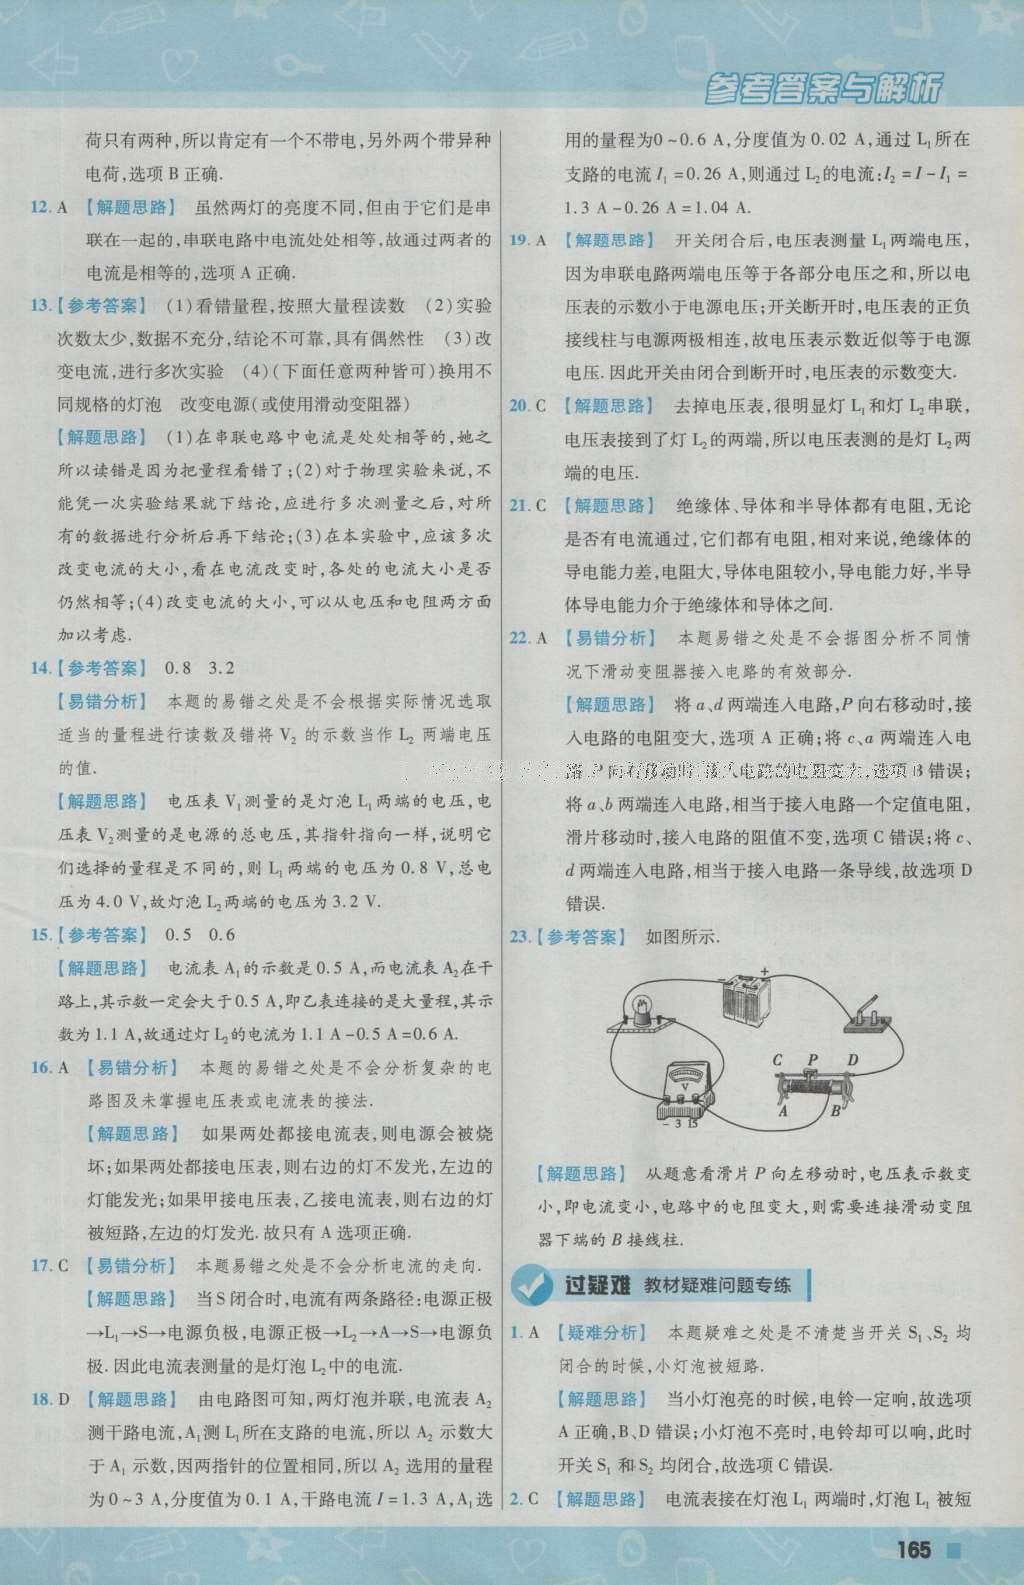 参考答案与解析
荷只有两种,所以肯定有一个不带电,另外两个带异种
电荷,选项 B 正确.
12. A 【解题思路】 虽然两灯的亮度不同,但由于它们是串
联在一起的,串联电路中电流处处相等,故通过两者的
电流是相等的,选项 A 正确.
13.【参考答案】 (1)看错量程,按照大量程读数 (2)实验
次数太少,数据不充分,结论不可靠,具有偶然性 (3)改
变电流,进行多次实验 (4)(下面任意两种皆可)换用不
同规格的灯泡 改变电源(或使用滑动变阻器)
【解题思路】 (1)在串联电路中电流是处处相等的,她之
所以读错是因为把量程看错了;(2)对于物理实验来说,不
能凭一次实验结果就下结论,应进行多次测量之后,对所
有的数据进行分析后再下结论;(3)在本实验中,应该多次
改变电流的大小,看在电流改变时,各处的电流大小是否
仍然相等;(4)改变电流的大小,可以从电压和电阻两方面
加以考虑.
14.【参考答案】 0.8 3.2
【易错分析】 本题的易错之处是不会根据实际情况选取
适当的量程进行读数及错将 V₂ 的示数当作 L₂ 两端电压
的值.
【解题思路】 电压表 V₁测量的是灯泡 L₁两端的电压,电
压表 V₂测量的是电源的总电压,其指针指向一样,说明它
们选择的量程是不同的,则 L₁两端的电压为 0.8 V,总电
压为 4.0 V,故灯泡 L₂两端的电压为 3.2 V.
15.【参考答案】 0.5 0.6
【解题思路】 电流表 A₁的示数是 0.5 A,而电流表 A₂在干
路上,其示数一定会大于 0.5 A,即乙表连接的是大量程,其示
数为 1.1 A,故通过灯 L₂的电流为 1.1 A-0.5 A=0.6 A.
16. A 【易错分析】 本题的易错之处是不会分析复杂的电
路图及未掌握电压表或电流表的接法.
【解题思路】 如果两处都接电流表,则电源会被烧
坏;如果两处都接电压表,则右边的灯不发光,左边的
灯能发光;如果甲接电压表,乙接电流表,则右边的灯
被短路,左边的灯发光.故只有 A 选项正确.
17. C 【易错分析】 本题易错之处是不会分析电流的走向.
【解题思路】 当 S 闭合时,电流有两条路径:电源正极
→L₁→S→电源负极,电源正极→L₂→A→S→电源负
极.因此电流表测量的是灯泡 L₂中的电流.
18. D 【解题思路】 由电路图可知,两灯泡并联,电流表 A₂
测干路电流,A₁测 L₁所在支路的电流,所以 A₂ 示数大
于 A₁ 示数,因两指针的位置相同,所以 A₂ 选用的量程
为 0~3 A,分度值为 0.1 A,干路电流 I=1.3 A,A₁选
用的量程为0~0.6 A,分度值为 0.02 A,通过 L₁所在
支路的电流 I₁=0.26 A,则通过 L₂的电流:I₂=I-I₁=
1.3 A-0.26 A=1.04 A.
19. A 【解题思路】 开关闭合后,电压表测量 L₁两端电压,
因为串联电路两端电压等于各部分电压之和,所以电
压表的示数小于电源电压;开关断开时,电压表的正负
接线柱与电源两极相连,故电压表示数近似等于电源
电压.因此开关由闭合到断开时,电压表的示数变大.
20. C 【解题思路】 去掉电压表,很明显灯 L₁和灯 L₂串联,
电压表接到了灯 L₂的两端,所以电压表测的是灯 L₂两
端的电压.
21. C 【解题思路】 绝缘体、导体和半导体都有电阻,无论
是否有电流通过,它们都有电阻,相对来说,绝缘体的
导电能力差,电阻大,导体电阻较小,导电能力好,半导
体导电能力介于绝缘体和导体之间.
22. A 【易错分析】 本题易错之处是不会据图分析不同情
况下滑动变阻器接入电路的有效部分.
【解题思路】 将 a、d 两端连入电路,P 向右移动时,接
入电路的电阻变大,选项 A 正确;将 c、a 两端连入电
路,P 向右移动时,接入电路的电阻变大,选项 B 错误;
将 a、b 两端连入电路,相当于接入电路一个定值电阻,
滑片移动时,接入电路的阻值不变,选项 C 错误;将 c、
d 两端连入电路,相当于接入电路一条导线,故选项 D
错误.
23.【参考答案】 如图所示.
- +
C P D
V
A B
- 3 15
【解题思路】 从题意看滑片 P 向左移动时,电压表示数变
小,即电流变小,电路中的电阻变大,则需要连接滑动变阻
器下端的 B 接线柱.
过疑难 教材疑难问题专练
1. A 【疑难分析】 本题疑难之处是不清楚当开关 S₁、S₂ 均
闭合的时候,小灯泡被短路.
【解题思路】 当小灯泡亮的时候,电铃一定响,故选项
A 正确,B、D 错误;小灯泡不亮时,电铃却可以响,此时
开关 S₁ 和 S₂ 均闭合,故选项 C 错误.
2. C 【解题思路】 电流表接在灯泡 L₁ 两端时,灯泡 L₁ 被短
165